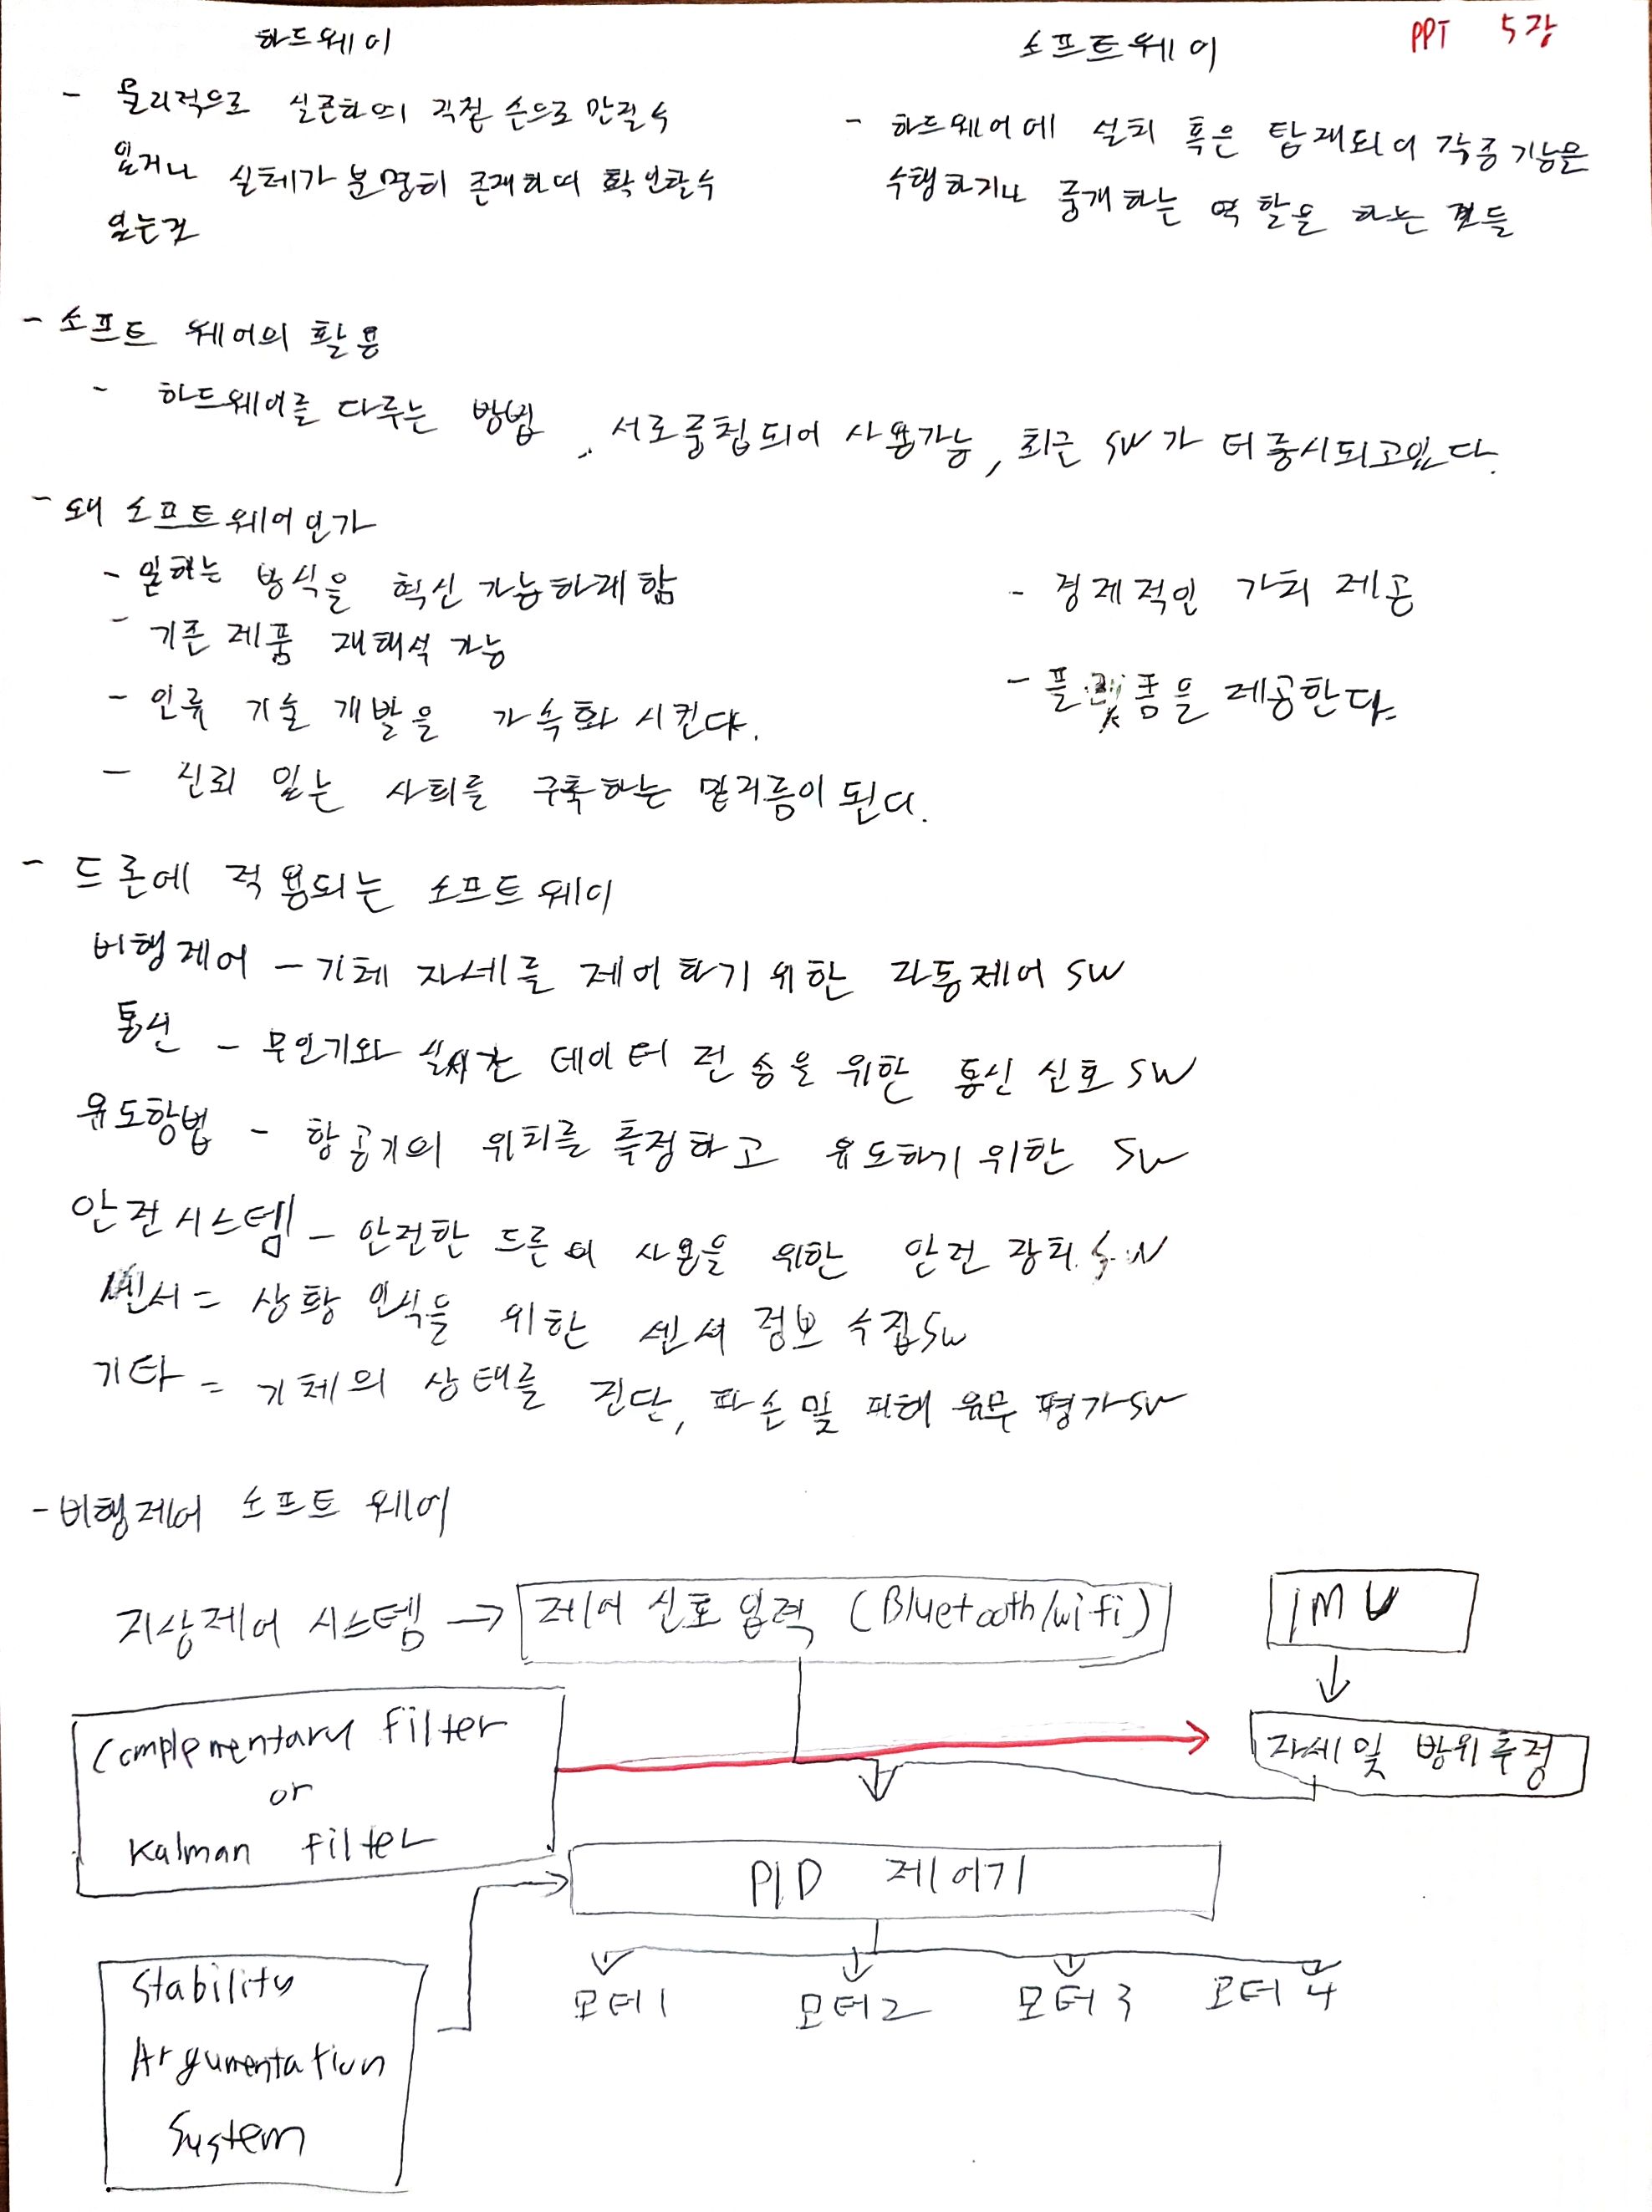 하드웨어
소프트웨어
PPT 5장
- 물리적으로 실존하며 직접 손으로 만질수
있거나 실체가 분명히 존재하며 확인할수
있는것
- 하드웨어에 설치 혹은 탑재되어 각종기능을
수행하거나 중개하는 역할을 하는 것들
- 소프트 웨어의 활용
- 하드웨어를 다루는 방법, 서로중첩되어 사용가능, 최근 SW가 더중시되고있다.
- 왜 소프트웨어인가
- 일하는 방식을 혁신 가능하게함
- 기존 제품 재해석 가능
- 인류 기술 개발을 가속화 시킨다.
- 신뢰 있는 사회를 구축하는 밑거름이 된다.
- 경제적인 가치 제공
- 플랫폼을 제공한다
- 드론에 적용되는 소프트웨어
비행제어 - 기체 자세를 제어하기 위한 자동제어 SW
통신 - 무인기와 실시간 데이터 전송을 위한 통신 신호 SW
유도항법 - 항공기의 위치를 측정하고 유도하기 위한 SW
안전시스템 - 안전한 드론의 사용을 위한 안전 장치 SW
센서 = 상황 인식을 위한 센서 정보 수집SW
기타 = 기체의 상태를 진단, 파손 및 피해 유무 평가SW
- 비행제어 소프트 웨어
지상제어 시스템 → 제어 신호 입력 (Bluetooth/wifi)
IMU
Complementary Filter
or
Kalman Filter
자세및 방위추정
PID 제어기
모터1 모터2 모터3 모터4
Stability
Argumentation
System